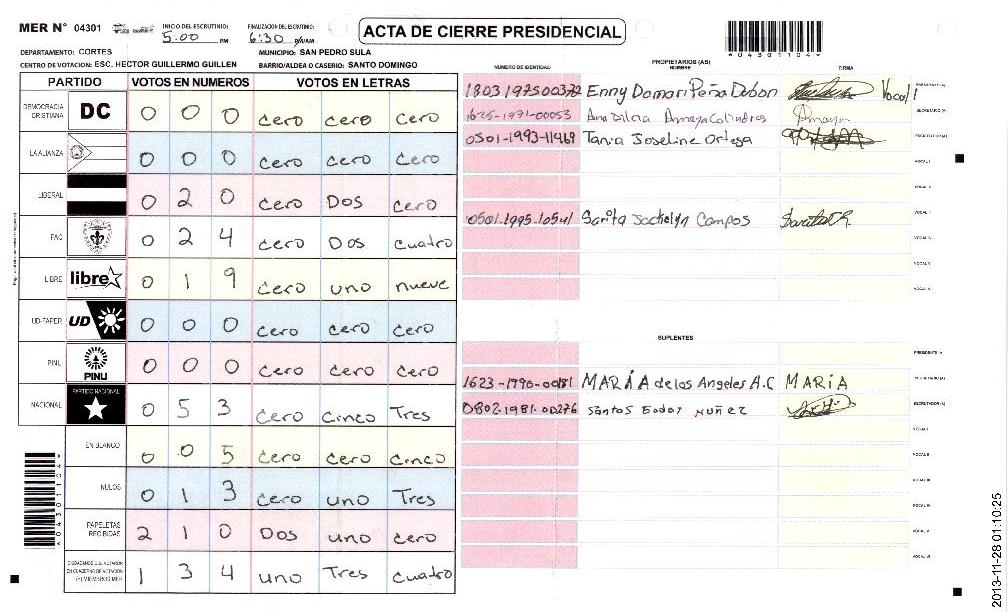 MER N° 04301 INICIO DEL ESCRUTINIO: 5:00 PM FINALIZACION DEL ESCRUTINIO: 6:30 P/AM
ACTA DE CIERRE PRESIDENCIAL
DEPARTAMENTO: CORTES MUNICIPIO: SAN PEDRO SULA
CENTRO DE VOTACION: ESC. HECTOR GUILLERMO GUILLEN BARRIO/ALDEA O CASERIO: SANTO DOMINGO
*04301104*
PARTIDO VOTOS EN NUMEROS VOTOS EN LETRAS
DEMOCRACIA CRISTIANA DC 0 0 0 cero cero cero
LA ALIANZA 0 0 0 cero cero cero
LIBERAL 0 2 0 cero Dos cero
PAC 0 2 4 cero Dos cuatro
LIBRE libre 0 1 9 cero uno nueve
UD-FAPER UD 0 0 0 cero cero cero
PINU PINU 0 0 0 cero cero cero
NACIONAL PARTIDO NACIONAL 0 5 3 cero cinco Tres
EN BLANCO 0 0 5 cero cero cinco
NULOS 0 1 3 cero uno Tres
PAPELETAS RECIBIDAS 2 1 0 Dos uno cero
CIUDADANOS QUE VOTARON EN CUADERNO DE VOTACION (+) MIEMBROS MER 1 3 4 uno Tres cuatro
*04301104*
PROPIETARIOS (AS)
NUMERO DE IDENTIDAD NOMBRE FIRMA
Enny Damari Peña Vocal I PRESIDENTE (A)
1625-1971-00053 Ana Dilma Amaya SECRETARIO (A)
0501-1993-11469 Tania Joseline Ortega ESCRUTADOR (A)
VOCAL I
VOCAL II
0501-1995-10541 Sarita Campos VOCAL III
VOCAL IV
VOCAL V
VOCAL VI
SUPLENTES
PRESIDENTE (A)
1623-1990-00181 MARÍA de los Angeles A.C MARIA SECRETARIO (A)
0802-1981-00276 Santos Nuñez ESCRUTADOR (A)
VOCAL I
VOCAL II
VOCAL III
VOCAL IV
VOCAL V
VOCAL VI
2013-11-28 01:10:25